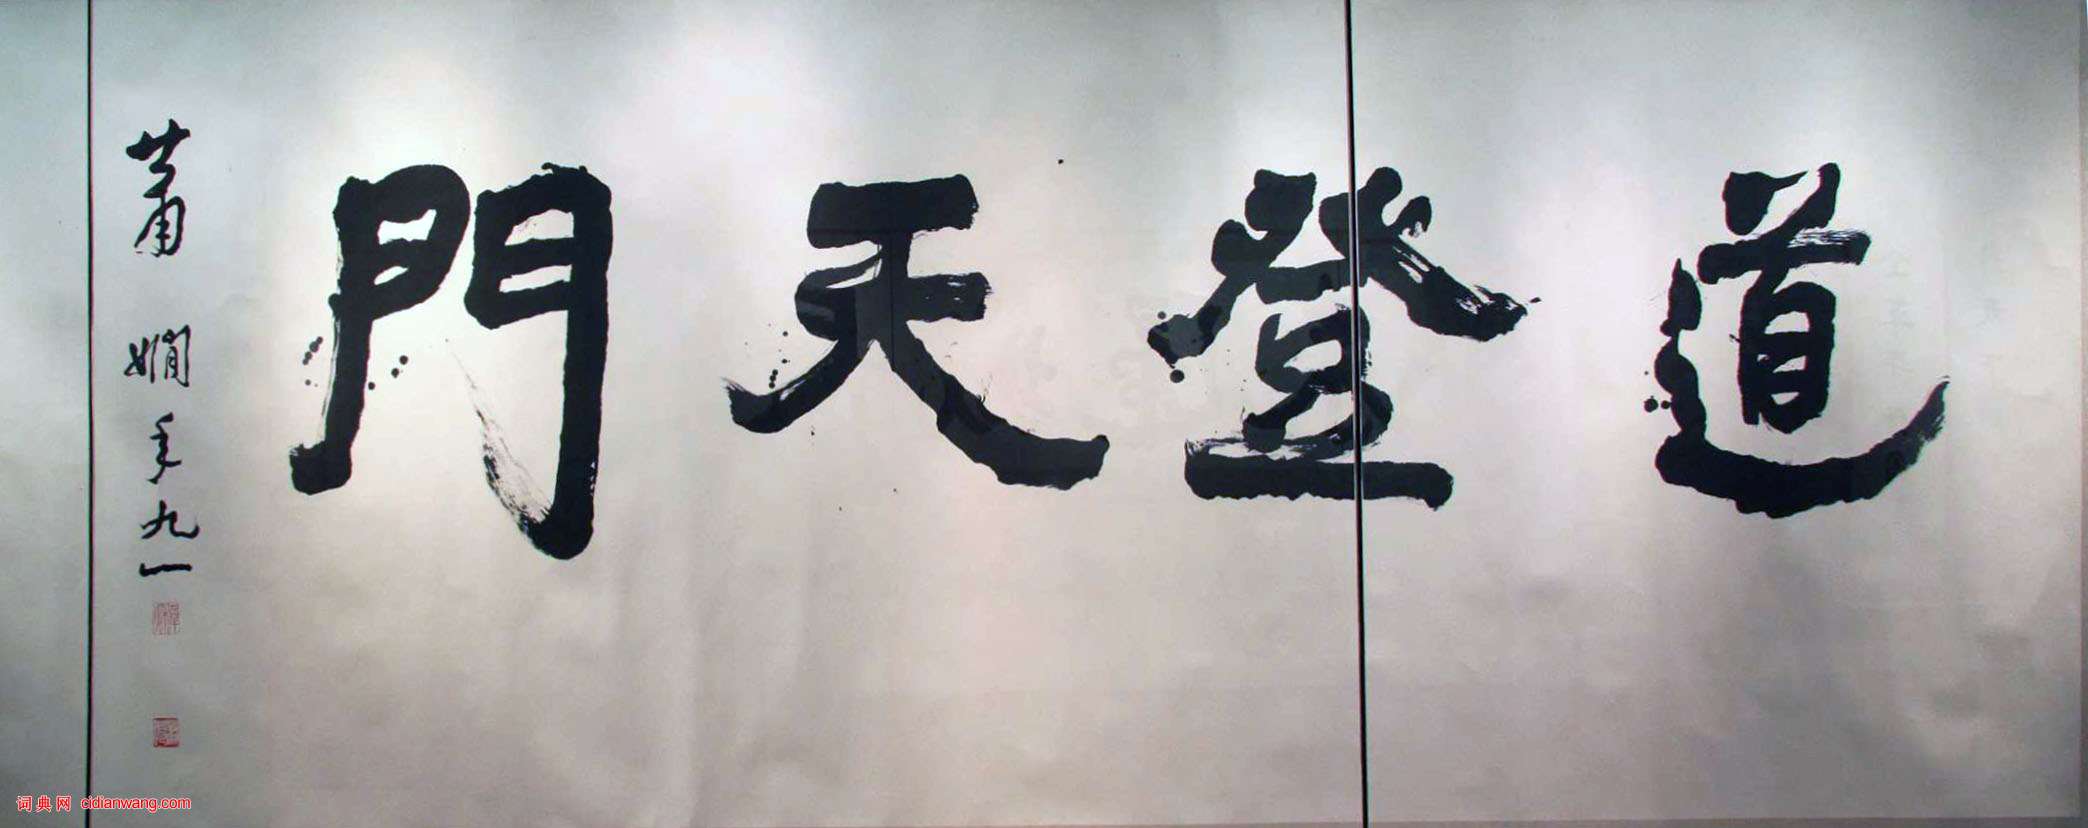 道登天門
蕭嫻年九一
词典网 cidianwang.com